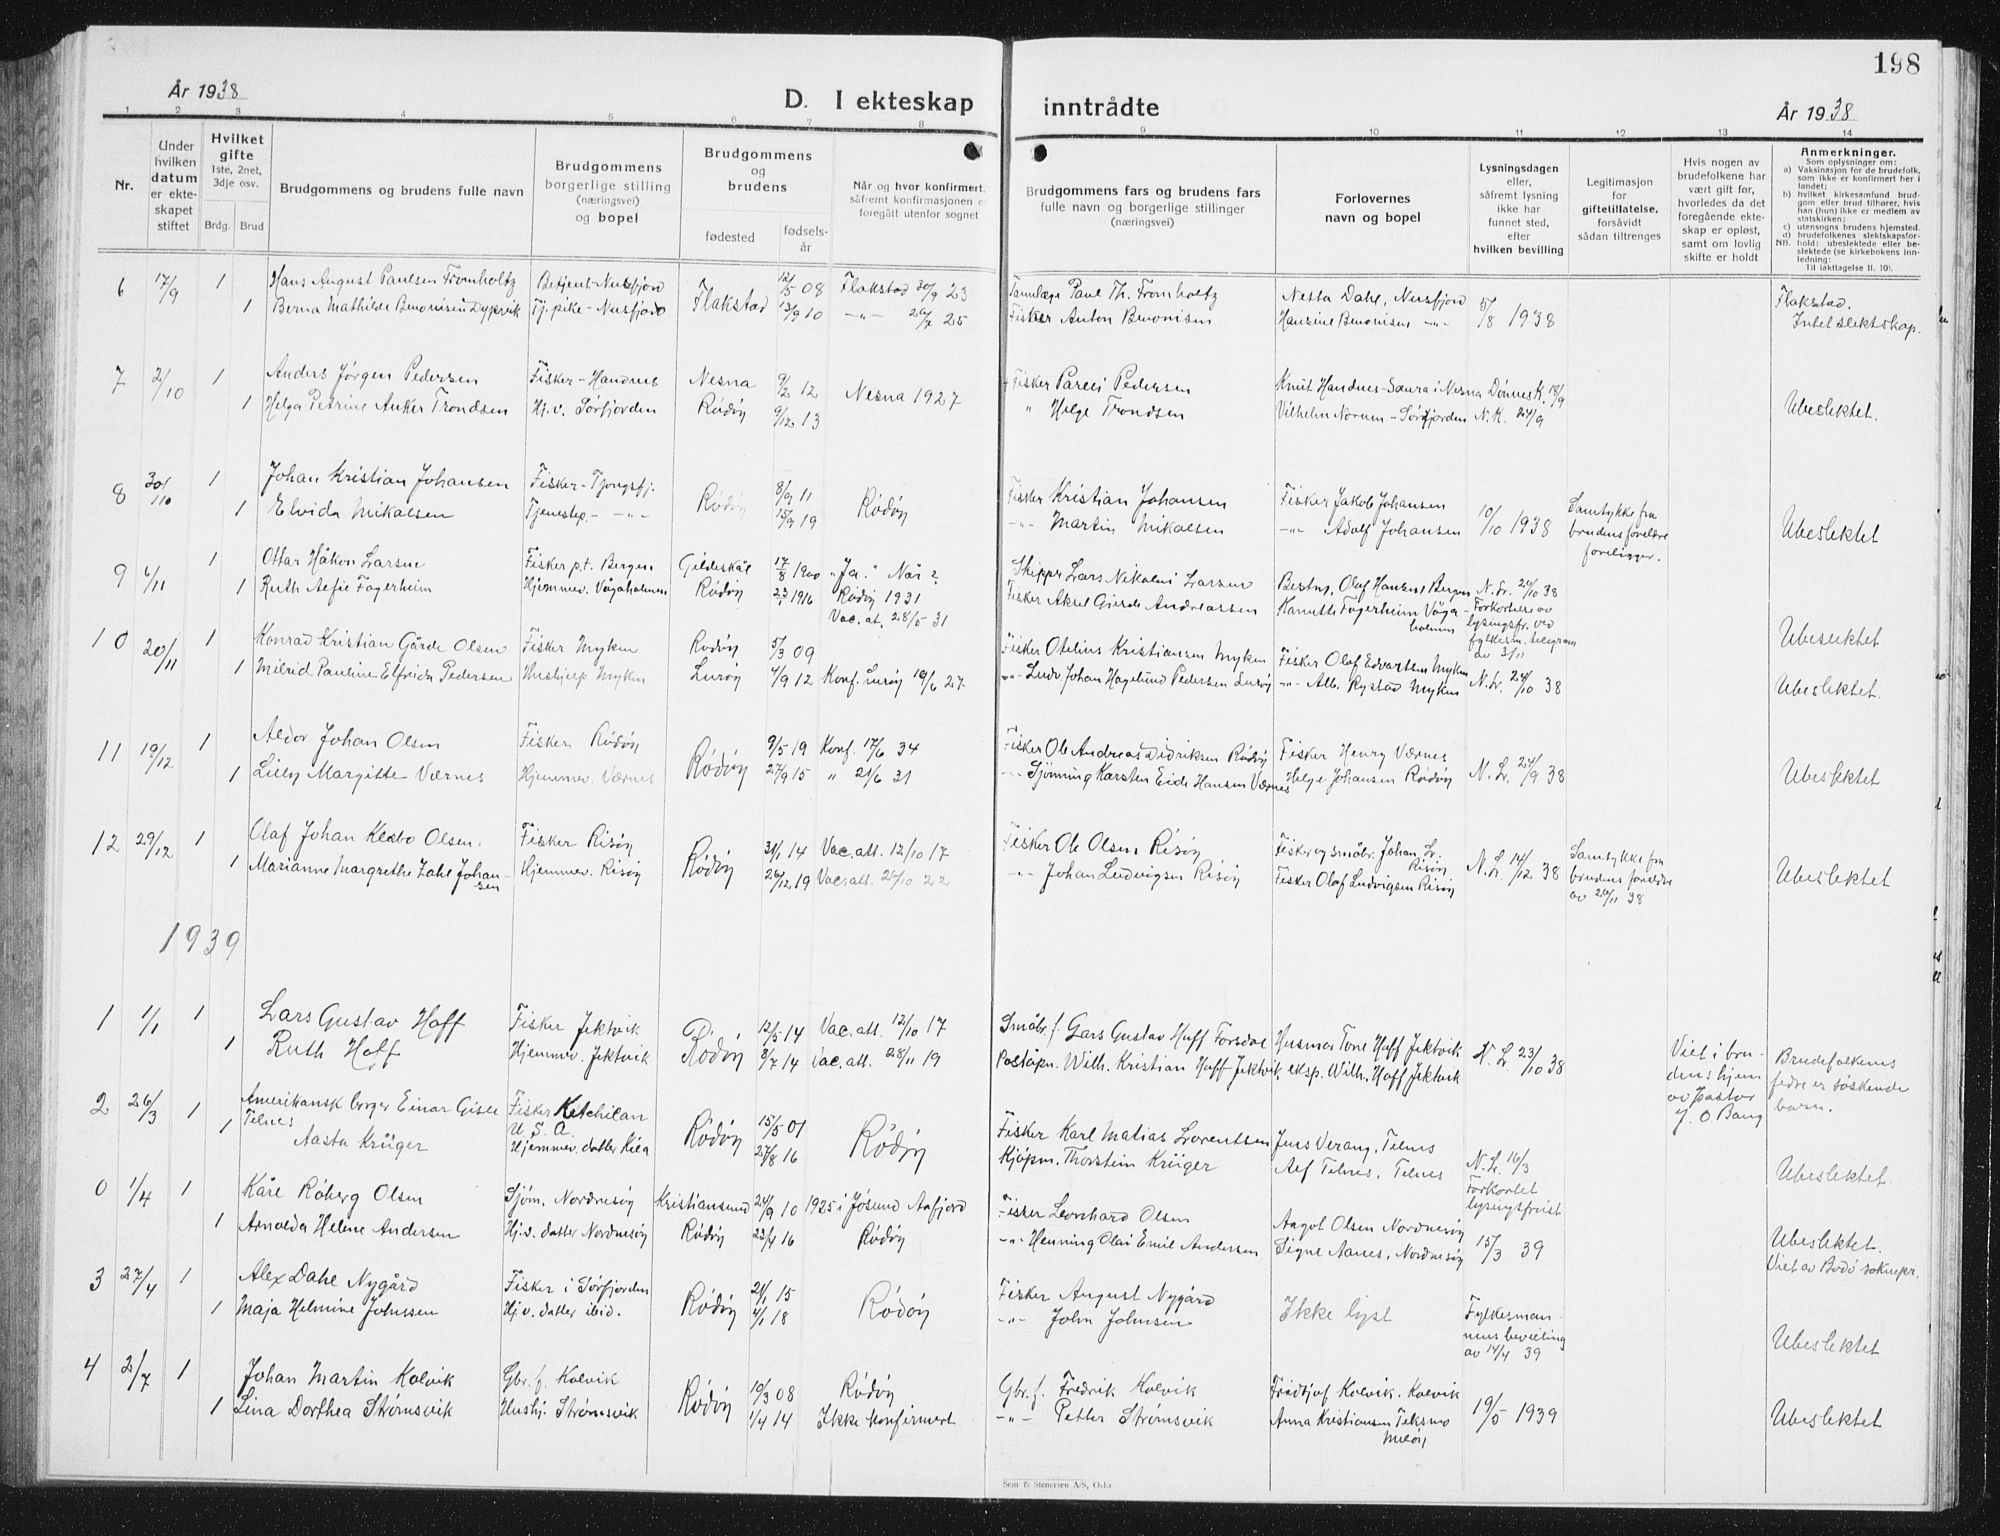 198
År 1938
D. I ekteskap inntrådte
År 1938
1 2 3 4 5 6 7 8 9 10 11 12 13 14
Nr.
Under hvilken datum er ekteskapet stiftet
Hvilket gifte 1ste, 2net, 3dje osv.
Brdg. Brud
Brudgommens og brudens fulle navn
Brudgommens borgerlige stilling (næringsvei) og bopel
Brudgommens og brudens
fødested
fødselsår
Når og hvor konfirmert,
såfremt konfirmasjonen er
foregått utenfor sognet
Brudgommens fars og brudens fars
fulle navn og borgerlige stillinger
(næringsvei)
Forlovernes
navn og bopel
Lysningsdagen
eller,
såfremt lysning
ikke har
funnet sted,
efter
hvilken bevilling
Legitimasjon
for
giftetillatelse,
forsåvidt
sådan tiltrenges
Hvis nogen av
brudefolkene har
vært gift før,
hvorledes da det
foregående ekte-
skap er opløst,
samt om lovlig
skifte er holdt
Anmerkninger.
Som oplysninger om:
a) Vaksinasjon for de brudefolk,
som ikke er konfirmert her i
landet;
b) hvilket kirkesamfund brud-
gom eller brud tilhører, hvis
han (hun) ikke er medlem av
statskirken;
c) utensogns brudens hjemsted.
d) brudefolkenes slektskapsfor-
NB. hold: ubeslektede eller be-
slektede (se kirkebokens inn-
ledning:
Til iakttagelse II. 10).
6 17/9 1 Hans August Paulsen Tromholtz Betjent-Nusfjord Flakstad 12/5 08 Flakstad 30/9 23 Tannlæge Paul Th. Tromholtz Nesta Dahl, Nusfjord 5/8 1938 Flakstad.
1 Berna Mathilde Benonisen Dypvik Tj.pike-Nusfjord 13/9 10 -"- 26/7 25 Fisker Anton Benonisen Hansine Benonisen -"- Intet slektskap.
7 2/10 1 Anders Jørgen Pedersen Fisker-Handnes Nesna 9/2 12 Nesna 1927 Fisker Pareli Pedersen Knut Handnes-Saura i Nesna Dønnes K. 18/9
1 Helga Petrine Anker Trondsen Hj.v. Sørfjorden Rödöy 9/12 13 " Helge Trondsen Vilhelm Norum-Sørfjorden N.K. 24/9 Ubeslektet.
8 30/10 1 Johan Kristian Johansen Fisker-Tjongsfj. Rödöy 8/9 11 Rödöy Fisker Kristian Johansen Fisker Jakob Johansen 10/10 1938 Samtykke fra
1 Elvida Mikalsen Tjenestep. -"- 15/9 19 -"- Martin Mikalsen -"- Adolf Johansen brudens forelære Ubeslektet
foreligger.
9 6/11 1 Ottar Håkon Larsen Fisker p.t. Bergen Gildeskål 17/8 1900 "Ja." Når? Skipper Lars Nikolai Larsen Bestm. Olaf Hansen, Bergen N.L. 24/10 38
1 Ruth Aefie Fagerheim Hjemmev. Vågaholmen Rödöy 23/1 1916 Rödöy 1931 Fisker Aksel Girde Andreassen Kanutte Fagerheim Våga- Forkortelse av
Vac. at. 28/5 31 holmen lysingsfr. ved
fylkesm. telegram Ubeslektet
av 3/11
10 20/11 1 Konrad Kristian Gårde Olsen Fisker Myken Rödöy 5/3 09 Fisker Otelius Kristiansen Myken Fisker Olaf Edvartsen Myken
1 Milrid Pauline Elfrida Pedersen Hushjelp Myken Lurøy 4/9 12 Konf. Lurøy 19/6 27 -"- Ludv. Johan Hagelund Pedersen Lurøy -"- Alb. Rystad Myken N.L. 24/10 38 Ubeslektet.
11 19/12 1 Aldor Johan Olsen Fisker Rödöy Rödöy 9/5 19 Konf. 17/6 34 Fisker Ole Andreas Didriksen Rödöy Fisker Henry Værnes N.L. 24/9 38
1 Lilly Margitte Værnes Hjemmev. Værnes 27/9 15 " 21/6 31 -"- Sjönning Karsten Eide Hansen Værnes Helge Johansen Rödöy Ubeslektet
12 29/12 1 Olaf Johan Klæbo Olsen Fisker Risöy Rödöy 31/1 14 Vac.att. 12/10 17 Fisker Ole Olsen Risöy Fisker og småbr. Johan Lr. Risöy N.L. 14/12 38 Samtykke fra
1 Marianne Margrethe Zahl Johansen Hjemmev. Risöy 26/12 19 Vac.att. 26/10 22 -"- Johan Ludvigsen Risöy Fisker Olaf Ludvigsen Risöy brudens foreldre Ubeslektet
av 26/11 38
1939
1 1/1 1 Lars Gustav Hoff Fisker Jektvik Rödöy 12/5 14 Vac.att. 12/10 17 Småbr.f. Lars Gustav Hoff Forsdal Husmor Tone Hoff Jektvik N.L. 23/10 38 Viet i bru- Brudefolkenes
1 Ruth Hoff Hjemmev. Jektvik 8/7 14 Vac.att. 28/11 19 Poståpn. Wilh. Kristian Hoff Jektvik, eksp. Wilh. Hoff Jektvik dens hjem fedre er söskende
av pastor barn.
J. O. Bang
2 26/3 1 Amerikansk borger Einar Gisle Fisker Ketchikan Rödöy 15/5 01 Rödöy Fisker Karl Matias Lorentsen Jens Verang, Telnes
Telnes U.S.A.
1 Aasta Krüger Hjemmev. datter Kila 27/8 16 Kjöpm. Thorstein Krüger Aef Telnes, Telnes N.L. 16/3 Ubeslektet
Forkortet
lysingsfrist
0 1/4 1 Kåre Röberg Olsen Sjöm. Nordnesöy Kristiansund 24/9 10 1925 i Jösund Aafjord Fisker Leonhard Olsen Aagot Olsen Nordnesöy
1 Arnolda Helene Andersen Hj.v. datter Nordnesöy Rödöy 23/4 16 Rödöy -"- Henning Olai Emil Andersen Signe Nanes, Nordnesöy 15/3 39 Ubeslektet.
Viet av Bodö soknepr.
3 27/4 1 Alex Dahl Nygård Fisker i Sörfjorden Rödöy 21/1 15 Rödöy Fisker August Nygård Ikke lyst Fylkesman-
1 Maja Helmine Johnssen Hj.v. datter ibid. 4/1 18 -"- John Johnsen nens bevilling
av 14/4 39 Ubeslektet
4 2/7 1 Johan Martin Kolvik Gbr.f. Kolvik Rödöy 10/3 08 Rödöy Gbr.f. Fredrik Kolvik Fridtjof Kolvik, Kolvik 19/5 1939
1 Lina Dorthea Strömsvik Hushj. Strömsvik 1/4 14 Ikke konfirmert -"- Petter Strömsvik Anna Kristiansen Teksmo Ubeslektet
Melöy
Sem & Stenersen A/S, Oslo